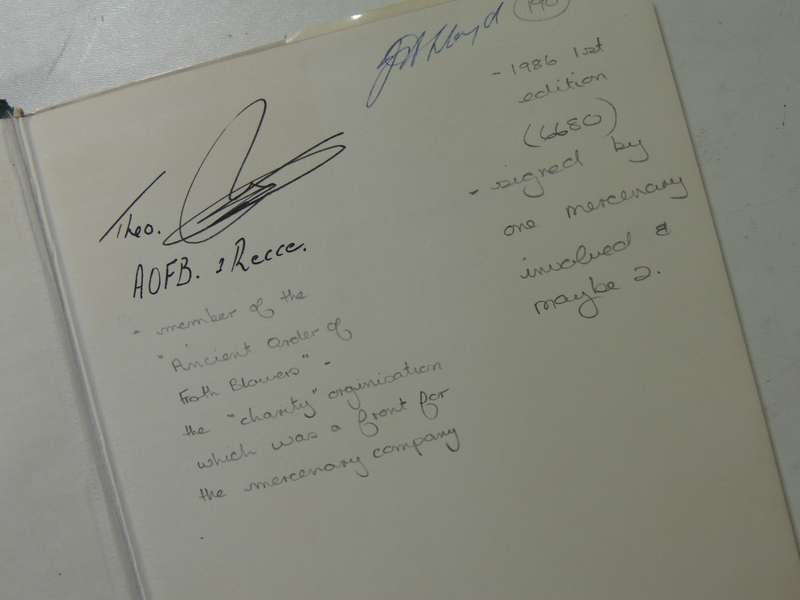 Theo.
AOFB. 1 Recce.
- member of the
"Ancient Order of
Froth Blowers" -
the "charity" orginisation
which was a front for
the mercenary company
Lloyd
190
- 1986 1st
edition
(6680)
- signed by
one mercenary
involved &
maybe 2.